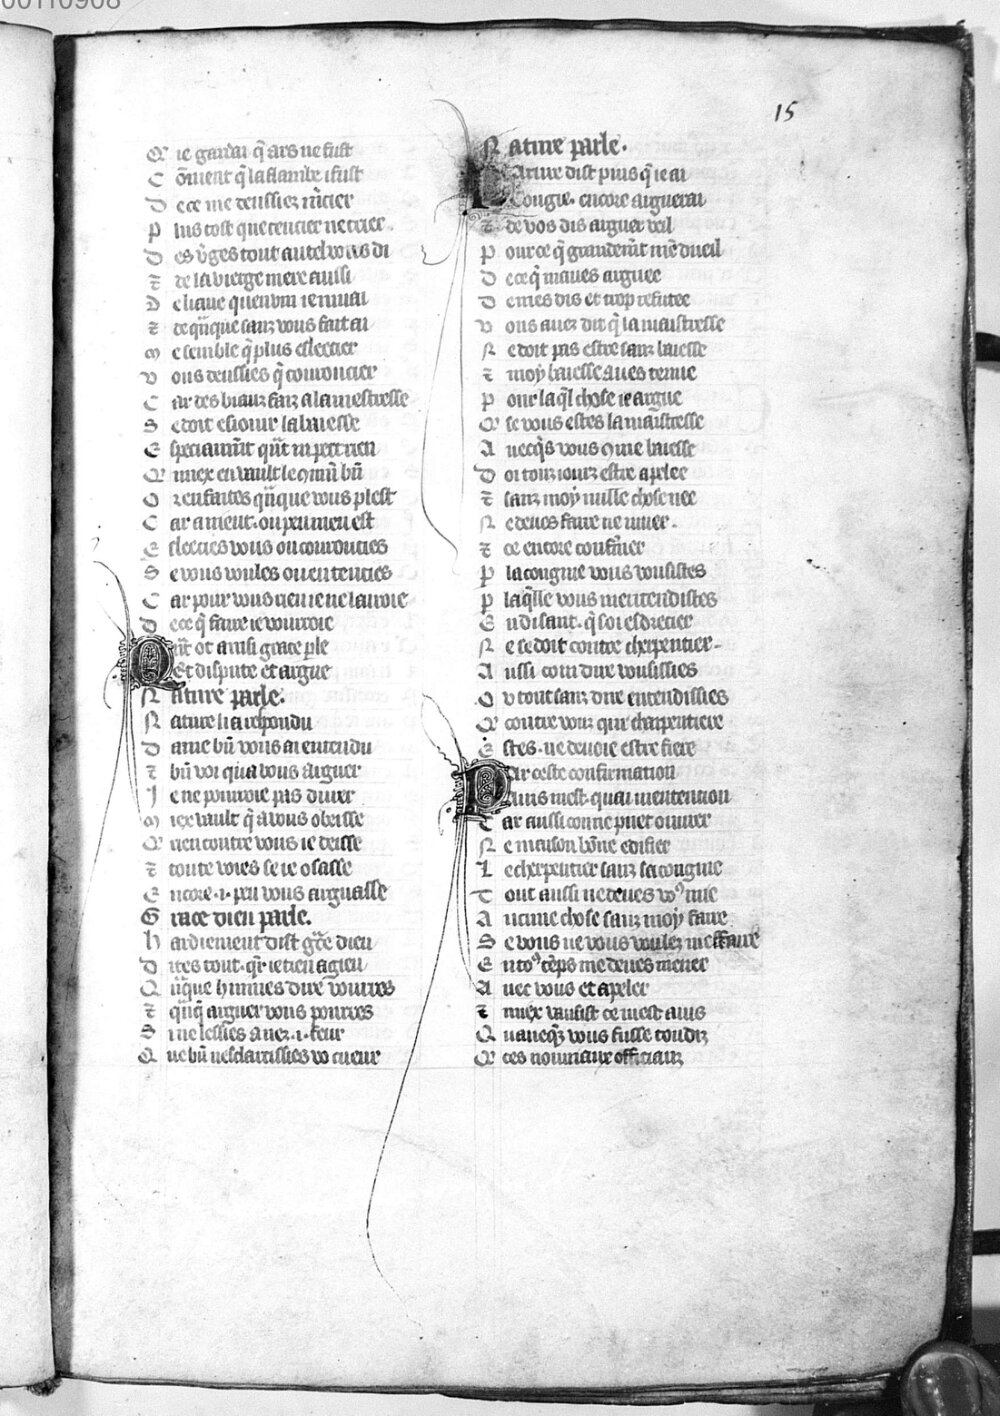 00110908
15
Q' ie gardai q̄ ars ne fust
C õment q̄ la flambe i fust
D e ce me deussiez m̃cier
P lus tost que tencier ne crier.
D es v̓ges tout autel vous di
⁊ de la vierge mere aussi
D e liaue quen vin ie muai
⁊ de q̄nque sanz vous fait ai
M e semble q̄ plus esleecier
V ous deussies q̄ couroucier
C ar des biaux faiz a la mestresse
S e doit esiouir la baiesse
E speciaumẽt q̄nt ni pert rien
Q' miex en vault le ꝯmũ biẽ
O r en faites q̄nque vous plest
C ar a nient. ou peu men est
E sleecies vous ou courouties
S e vous voules ou en tencies
C ar pour vous riens ie ne lairoie
D e ce q̄ faire ie vourroie
Q ñt ot ainsi grace ꝑle
Et dispute et argue
N ature parle.
N ature li a respondu
D ame bñ vous ai entendu
⁊ bñ voi qua vous arguer
I e ne pourroie pas durer
M iex vault q̄ a vous obeisse
Q' rien contre vous ie deisse
⁊ toute voies se ie osasse
E ncore .i. peu vous arguasse
G race dieu parle.
H ardiement dist g̃ce dieu
D ites tout. q̄r ie tien a gieu
Q ũque h mues dire vourres
⁊ q̄nq̄ arguer vous pourres
S i ne lessies a nez .i. feur
Q ue bñ nesclarcissies vo cueur
N ature parle.
Nature dist puis q̄ ie ai
Congie. encore arguerai
⁊ de vos dis arguer veil
P our ce q̄ grandemẽt mẽ dueil
D e ce q̄ maues arguee
D e mes dis et trop refutee
V ous auez dit q̄ la maistresse
N e doit pas estre sanz baiesse
⁊ moy baiesse aues tenue
P our la q̄l chose ie argue
Q' se vous estes la maistresse
A uecq̄s vous ꝯme baiesse
D oi touz iours estre apelee
⁊ sanz moy nulle chose nee
N e deues faire ne muer.
⁊ ce encore confñer
P la congnie vous vousistes
P laq̄lle vous mentendistes
E n disant. q̄ soi esdrecier
N e se doit contre cherpentier.
A ussi com dire vousissies
O u tout sanz dire entendissies
Q' contre vous que charpentiere
E stes. ne deuoie estre fiere
Par ceste confirmation
Auis mest. quai mentention
C ar aussi conne puet ouurer
N e maison bõne edifier
L e cherpentier sanz sa congnie
T out aussi ne deues vo9 mie
A ucune chose sanz moy faire
S e vous ne vous voulez meffaire
E n to9 tẽps me deues mener
A uec vous et apeler
⁊ miex vausist ce mest auis
Q uaueq̄z vous fusse toudiz
Q' ces nouuiaux officiaux